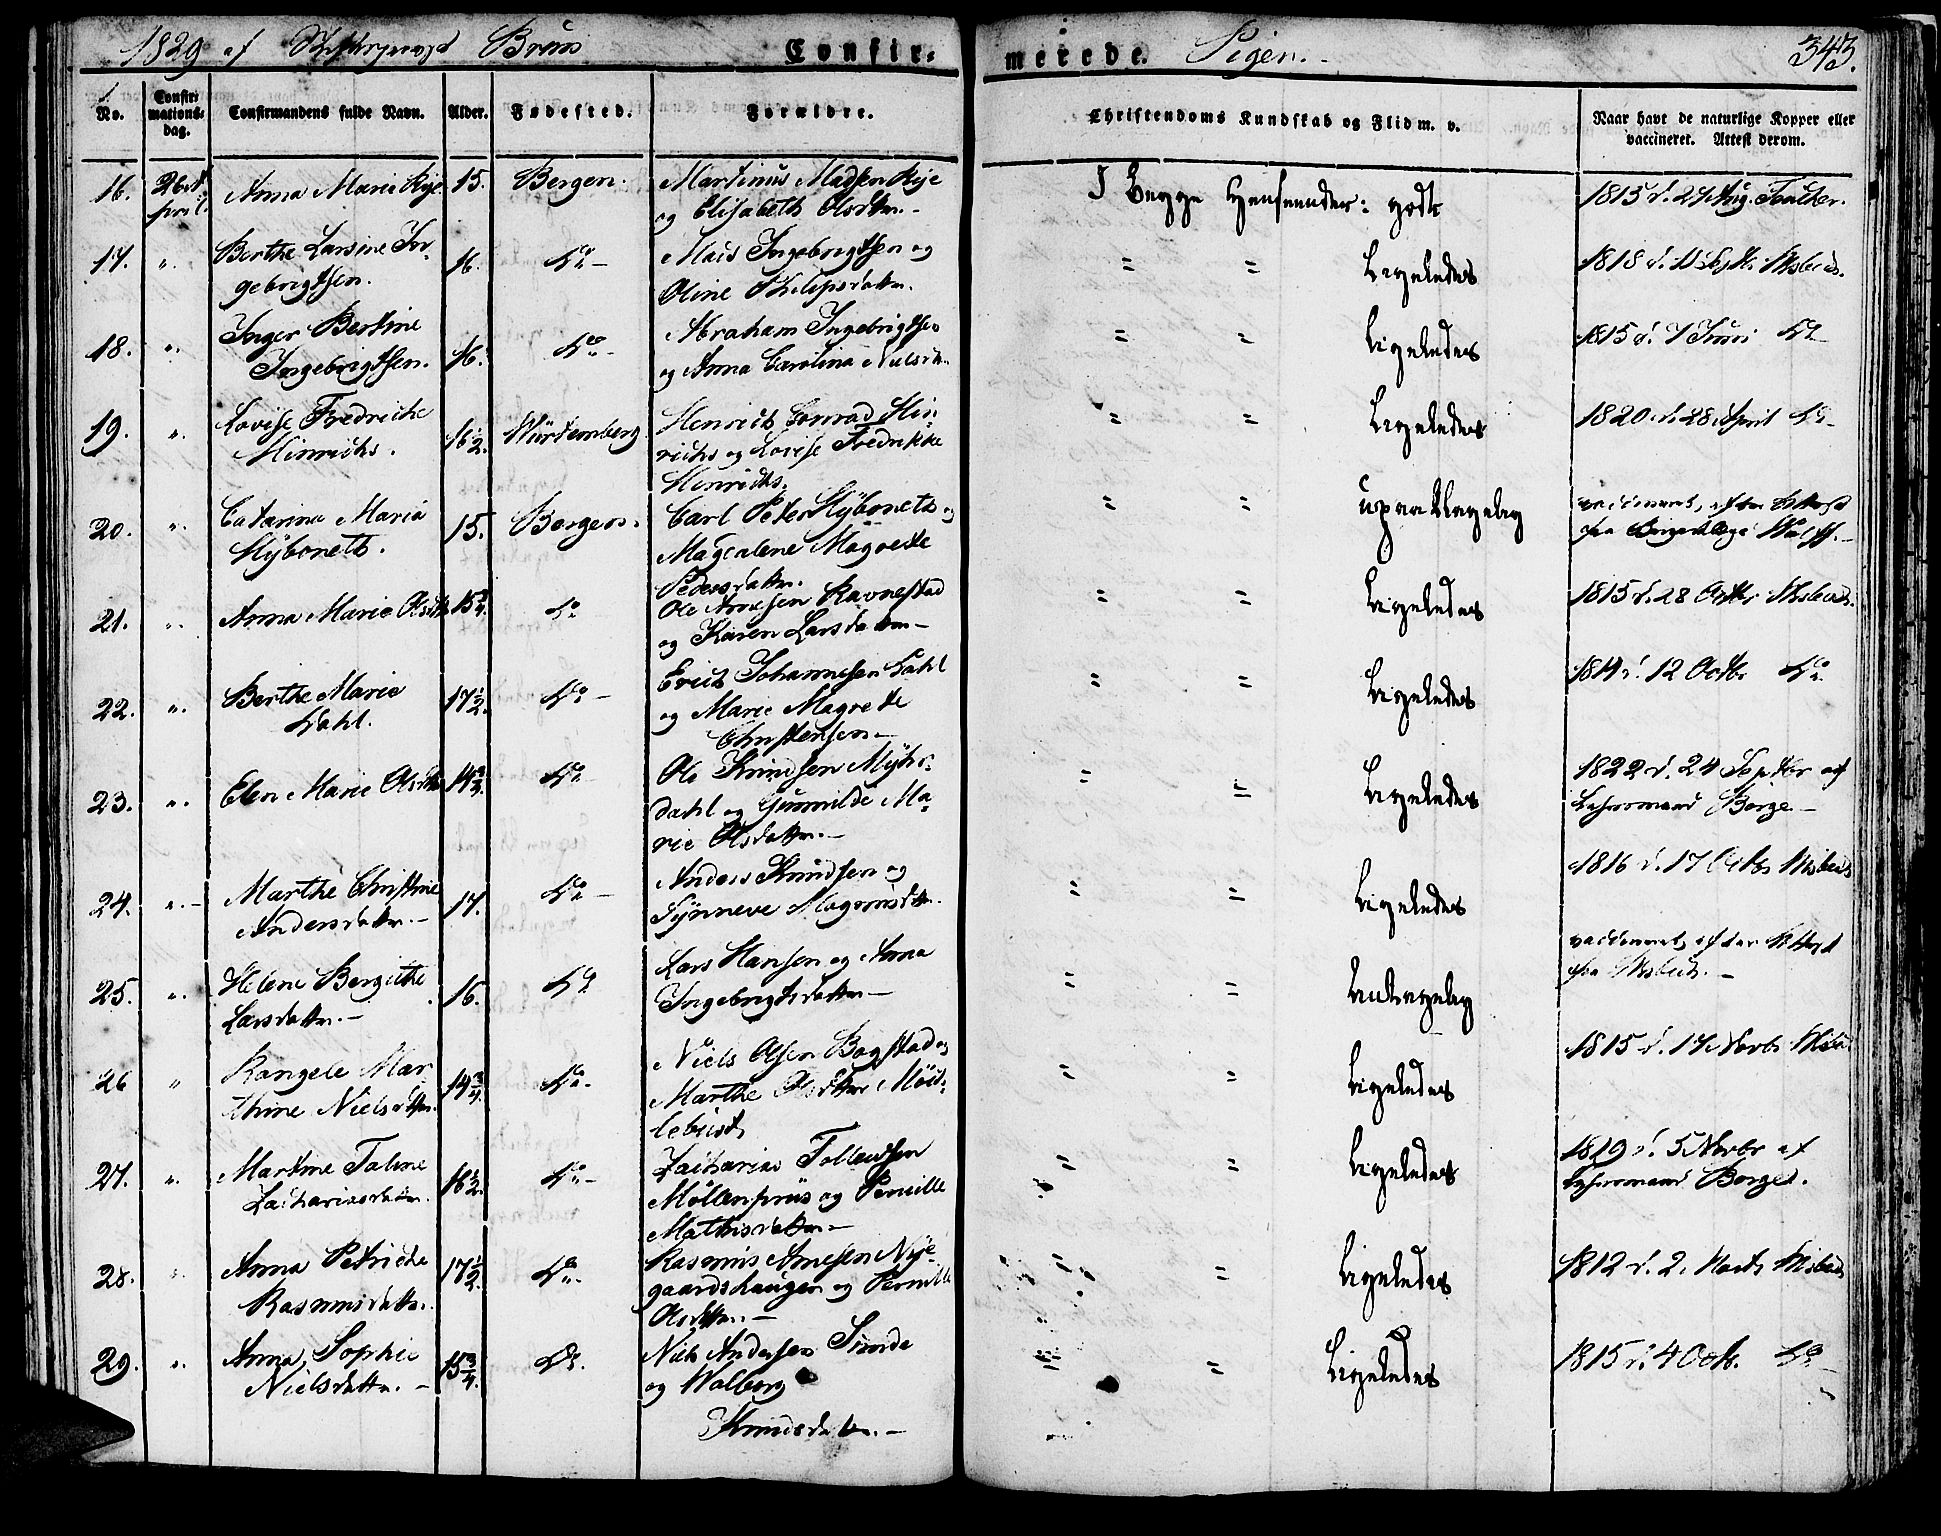 1829 af Stiftsprovst Brun Confir= merede. Piger. 343.
No. Confir= mations= dag. Confirmandens fulde Navn. Alder. Fødested. Forældre. Christendoms Kundskab og Flid m. v. Naar havt de naturlige Kopper eller vaccineret. Attest derom.
16. 26 A= pril. Anna Marie Rye 15. Bergen. Martinus Madsen Rye
og Elisabeth Olsdttr. I begge Henseender: godt 1815 d. 24 Aug.
17. ". Berthe Larsine In=
gebrigtsen. 16. do Mads Ingebrigtsen og
Oline Philipsdattr. " " Ligeledes 1818 d. Septr.
18. ". Inger Bertine
Ingebrigtsen. 16. do Abraham Ingebrigtsen
og Anna Carolina Nielsdr. " " Ligeledes 1815 d. 7 Juni do
19. ". Lovise Fredriche
Hinrichs. 16 1/2. Würtemberg. Henrich Conrad Hin=
richs og Lovise Fredrikke
Henrichs. " " Ligeledes 1820 d. 28 April do
20. ". Catarina Maria
Hÿboneth. 15. Bergen. Carl Peter Hÿboneth og
Magdalene Magrete
Pedersdattr. " " vaccineret, efter Attest
fra
21. ". Anna Marie Olsdtr 15 3/4. do Ole Arnesen Ravnestad
og Karen Larsdattr. " " Ligeledes 1815 d. 28 Octbr
22. ". Berthe Marie
Dahl. 17 1/2. do Erich Johannesen Dahl
og Marie Magrete
Christensen. " " Ligeledes 1814 d. 12 Octbr do
23. ". Elen Marie Olsdtr 14 3/4. do Ole Knudsen Myhr=
dahl og Gunnilde Ma=
rie Olsdattr. " " Ligeledes 1822 d. 24 Septbr af
Borge
24. ". Marthe Christine
Andersdattr. 17. do Anders Knudsen og
Synneve Magnusdttr. " " Ligeledes 1816 d. 17 Octbr
25. ". Helene Bergithe
Larsdattr. 16. do Lars Hansen og Anna
Ingebrigtsdattr. " " vaccineret, efter Attest
fra
26 " Rangele Mar=
thine Nielsdttr. 14 3/4. do Niels Olsen Bogstad og
Marthe Olsdttr " " Ligeledes 1815 d. 17 Novbr
27. ". Martine Tomine
Zachariasdattr. 16 1/2. do Zacharias Tollevsen
og Pernille
Mathisdattr. " " Ligeledes 1819 d. 5 Novbr af
Borge.
28. " Anna Petriche
Rasmusdattr. 17 1/2. do Rasmus Arnesen Nye=
gaardshaugen og Pernille
Olsdattr. " " Ligeledes 1812 d. 2. Marts
29. ". Anna Sophie
Nielsdattr. 15 3/4. do Niels Andersen Sunde
og Walborg
Knudsdattr. " " Ligeledes 1815 d. 4 Octb. do